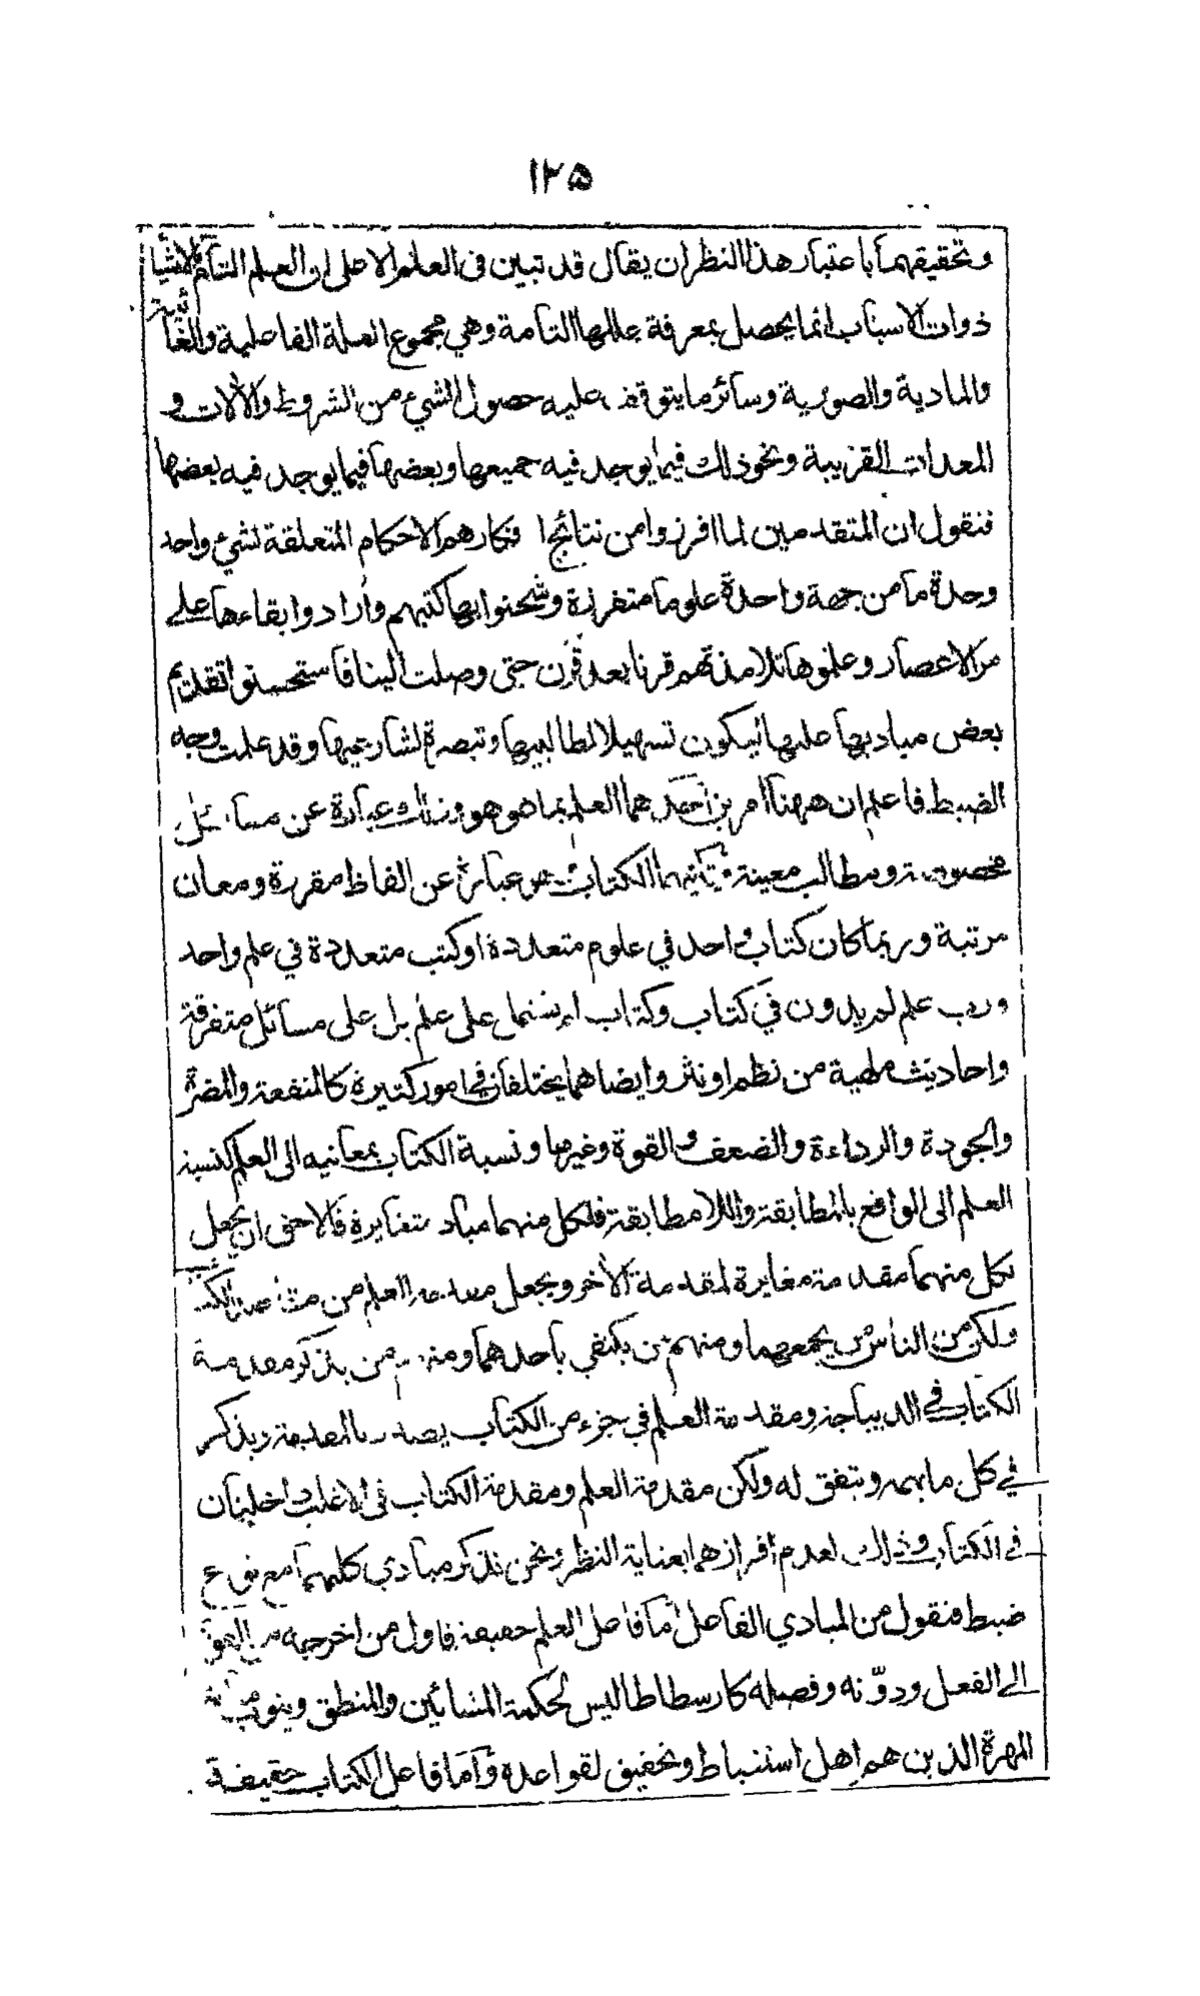 ١٢٥
وتحقيقهما باعتبار هذا النظر ان يقال قد تبين فى العلم الاعلى ان العلم التام بالاشيا
ذوات الاسباب انما يحصل بمعرفة عللها التامة وهي مجموع العلة الفاعلية والغائية
والمادية والصورية وسائر ما يتوقف عليه حصول الشيء من الشروط والالات و
المعدات القريبة ونحو ذلك فيما يوجد فيه جميعها وبعضها فيما يوجد فيه بعضها
فنقول ان المتقدمين لما افرزوا من نتائج افكارهم الاحكام المتعلقة بشيء واحد
وحدة ما من جهة واحدة علوما متفرزة وشحنوا بها كتبهم وارادوا بقاءها على
مر الاعصار وعلموها تلامذتهم قرنا بعد قرن حتى وصلت الينا فاستحسنوا تقديم
بعض مباديها عليها ليكون تسهيلا لطالبيها وتبصرة لشارعيها وقد علمت وجه
الضبط فاعلم ان ههنا امرين احدهما العلم بما هو هو وذلك عبارة عن مسائل
مخصوصة ومطالب معينة وثانيهما الكتاب عبارة عن الفاظ مقررة ومعان
مرتبة وربما كان كتاب واحد في علوم متعددة او كتب متعددة في علم واحد
ورب علم لم يدون في كتاب وكتاب لم يشتمل على علم بل على مسائل متفرقة
واحاديث ملهية من نظم او نثر وايضا هما يختلفان في امور كثيرة كالمنفعة والمضرة
والجودة والرداءة والضعف والقوة وغيرها ونسبة الكتاب بمعانيه الى العلم كنسبة
العلم الى الواقع بالمطابقة واللامطابقة فلكل منهما مباد متغايرة فالاحق ان يجعل
لكل منهما مقدمة مغايرة لمقدمة الآخر ويجعل مقدمة العلم من
ولكن من الناس من يجمعهما ومنهم من يكتفي باحدهما ومنهم من يذكر مقدمة
الكتاب في الديباجة ومقدمة العلم في جزء من الكتاب يصدر بالمقدمة ويذكر
في كل ما يهمه ويتفق له ولكن مقدمة العلم ومقدمة الكتاب فى الاغلب داخلتان
في الكتاب وذلك لعدم افرازهما بعناية النظر ونحن نذكر مبادي كليهما مع نوع
ضبط فنقول من المبادي الفاعل اما فاعل العلم حقيقة فاول من اخرجه من القوة
الى الفعل ودوّنه وفصله كارسطاطاليس لحكمة المشائين والمنطق وينوب
المهرة الذين هم اهل استنباط وتحقيق لقواعده واما فاعل الكتاب حقيقة